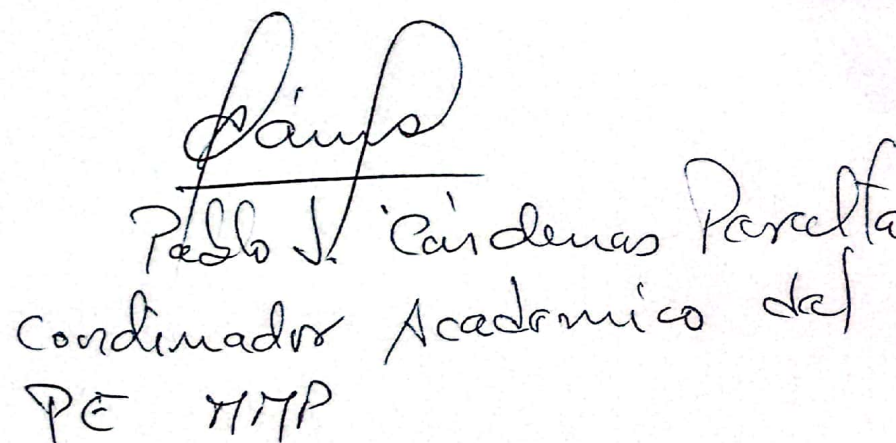 Pablo J. Cárdenas Peralta
Coordinador Académico del
PE MMP